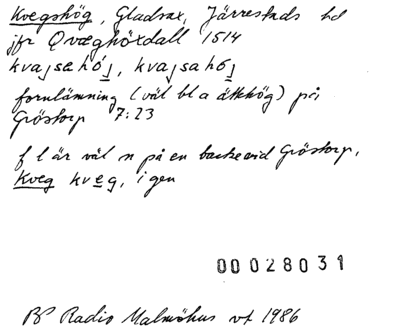 Kvegshög, Gladsax, Järrestads hd
jfr Qvæghöxdall 1514
kvaɟsahóɟ, kvaɟsahóɟ
fornlämning (väl bl a ätthög) på
Gröstorp 7:23
f l är väl n på en backe vid Gröstorp,
Kveg kveg, igen
00028031
BP Radio Malmöhus vt 1986